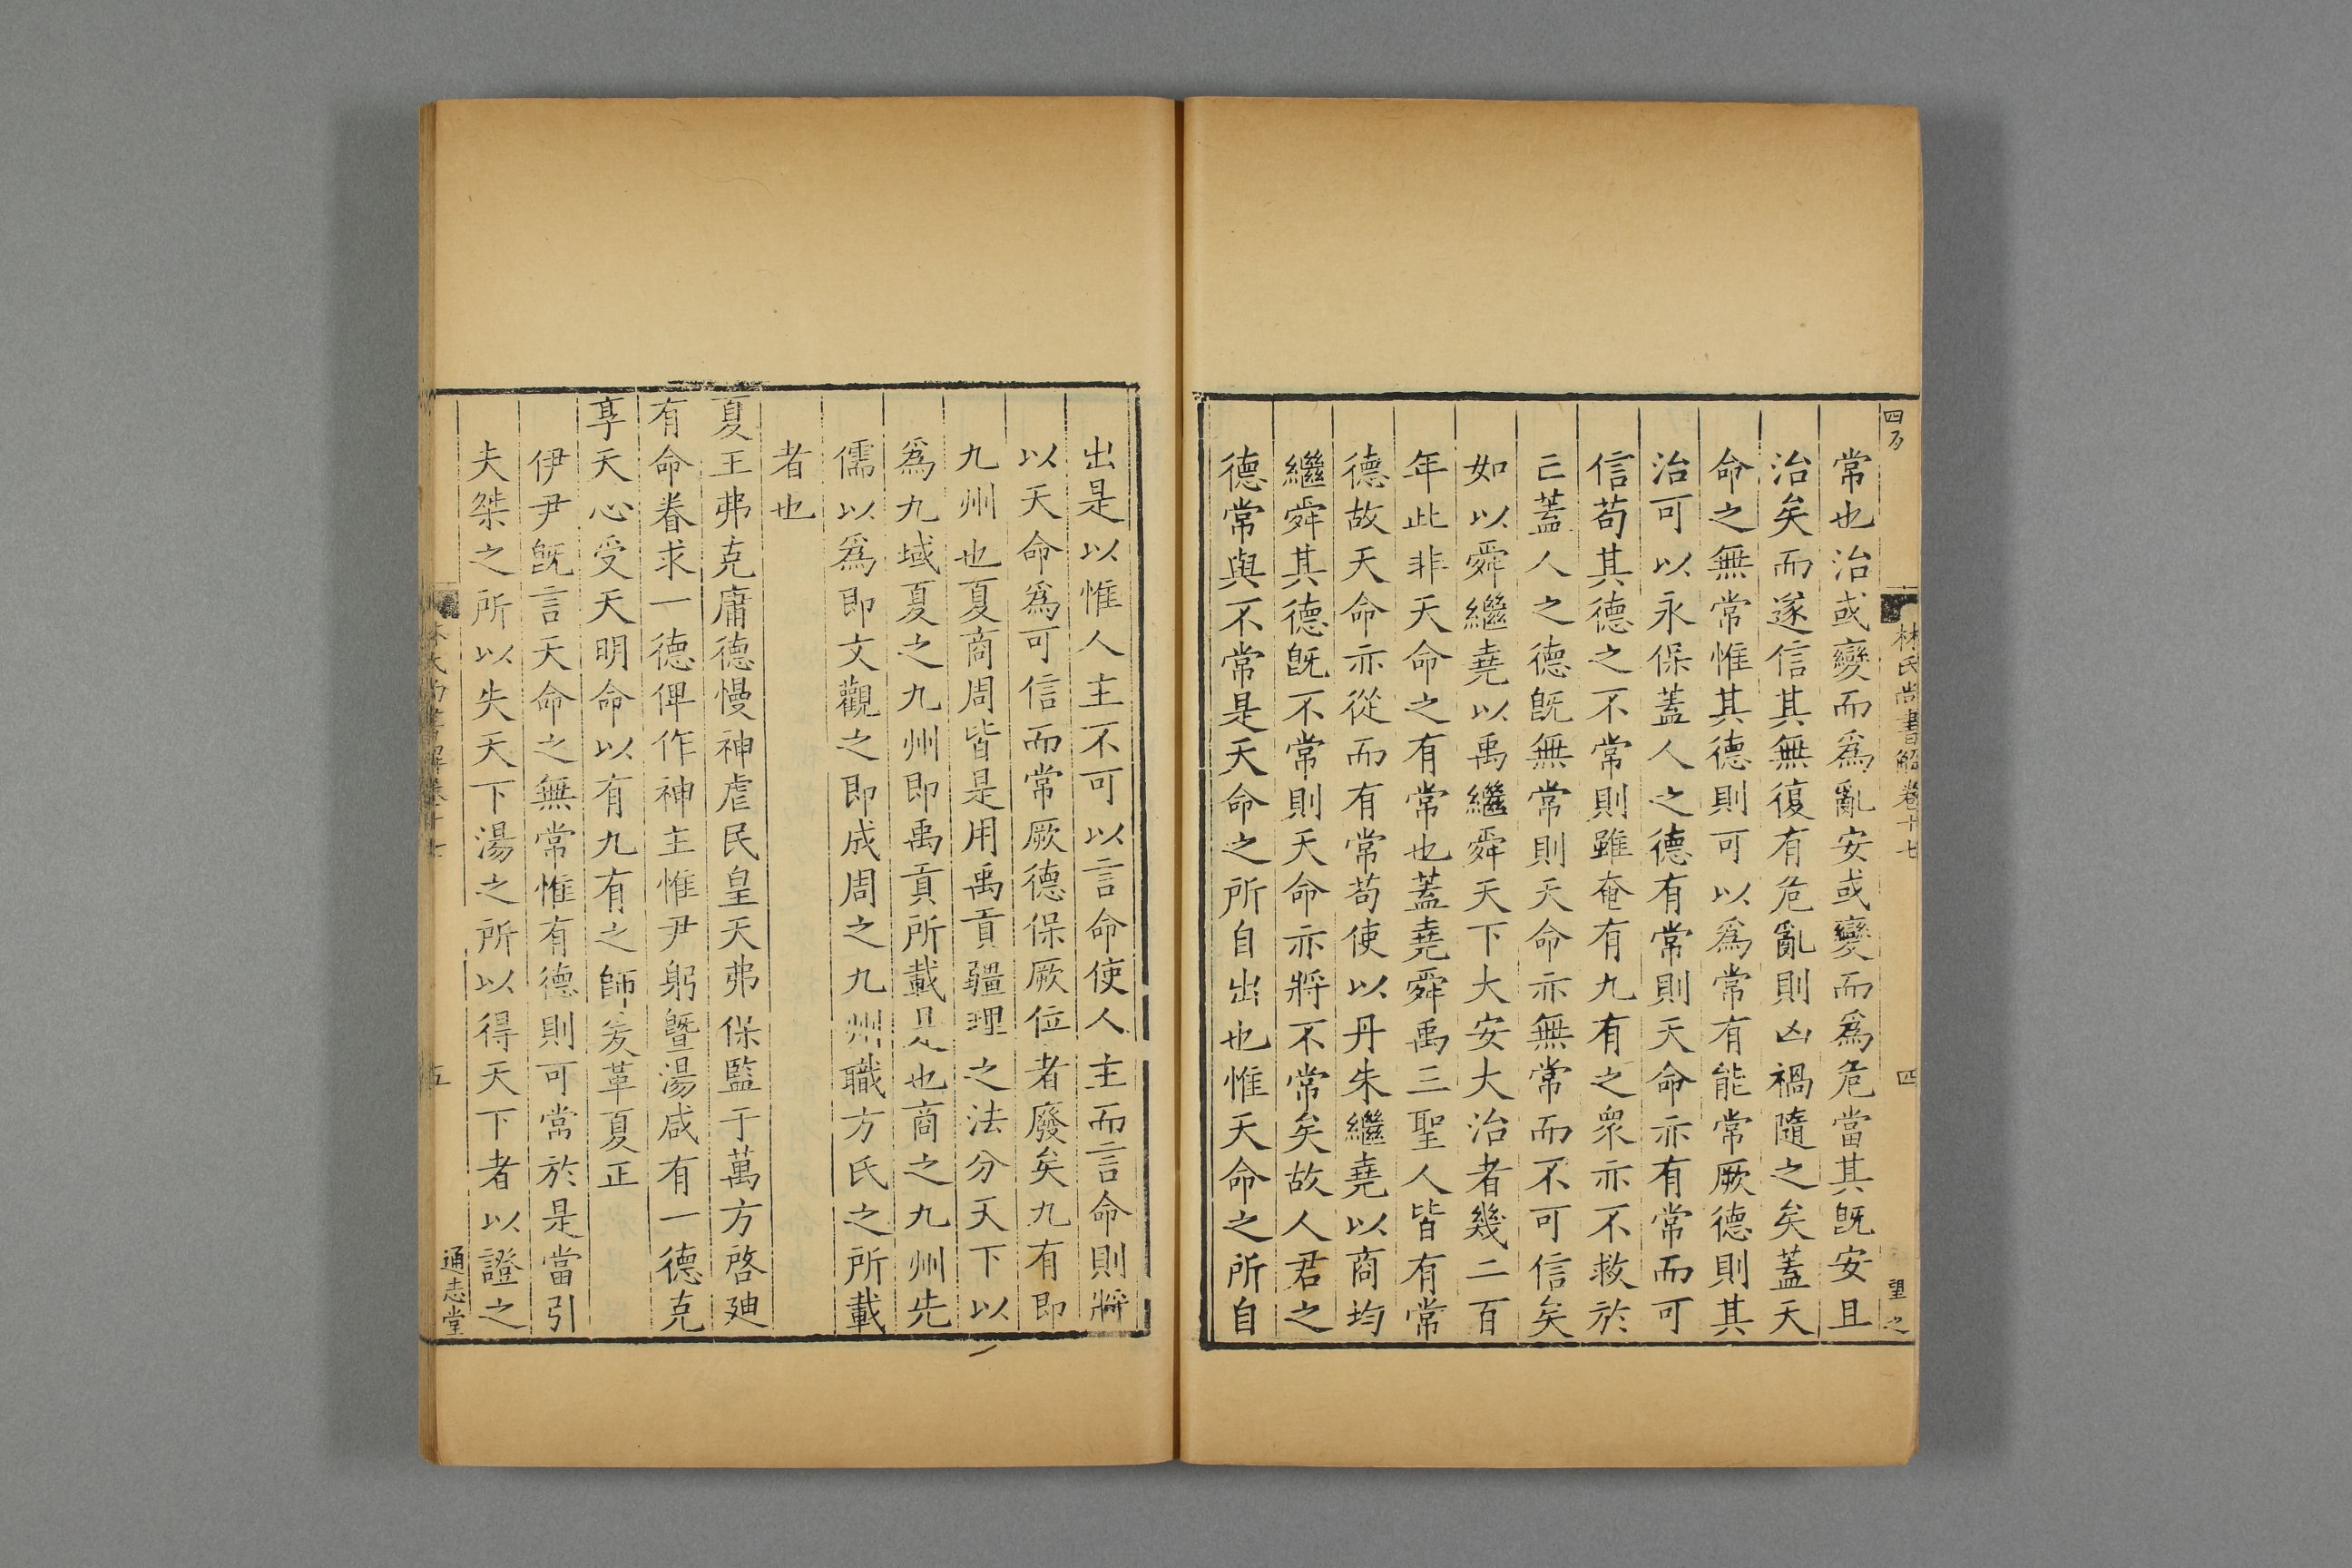 四万
林氏尚書解卷十七
四
望之
常也治或變而為亂安或變而為危當其旣安且
治矣而遂信其無復有危亂則凶禍隨之矣蓋天
命之無常惟其德則可以為常有能常厥德則其
治可以永保蓋人之德有常則天命亦有常而可
信苟其德之不常則雖奄有九有之衆亦不救於
亡蓋人之德旣無常則天命亦無常而不可信矣
如以舜繼堯以禹繼舜天下大安大治者幾二百
年此非天命之有常也蓋堯舜禹三聖人皆有常
德故天命亦從而有常苟使以丹朱繼堯以商均
繼舜其德旣不常則天命亦將不常矣故人君之
德常與不常是天命之所自出也惟天命之所自
出是以惟人主不可以言命使人主而言命則將
以天命爲可信而常厥德保厥位者廢矣九有即
九州也夏商周皆是用禹貢疆理之法分天下以
爲九域夏之九州即禹貢所載是也商之九州先
儒以爲即文觀之即成周之九州職方氏之所載
者也
夏王弗克庸德慢神虐民皇天弗保監于萬方啓廸
有命眷求一德俾作神主惟尹躬曁湯咸有一德克
享天心受天明命以有九有之師爰革夏正
伊尹旣言天命之無常惟有德則可常於是當引
夫桀之所以失天下湯之所以得天下者以證之
林氏尚書解卷十七
五
通志堂